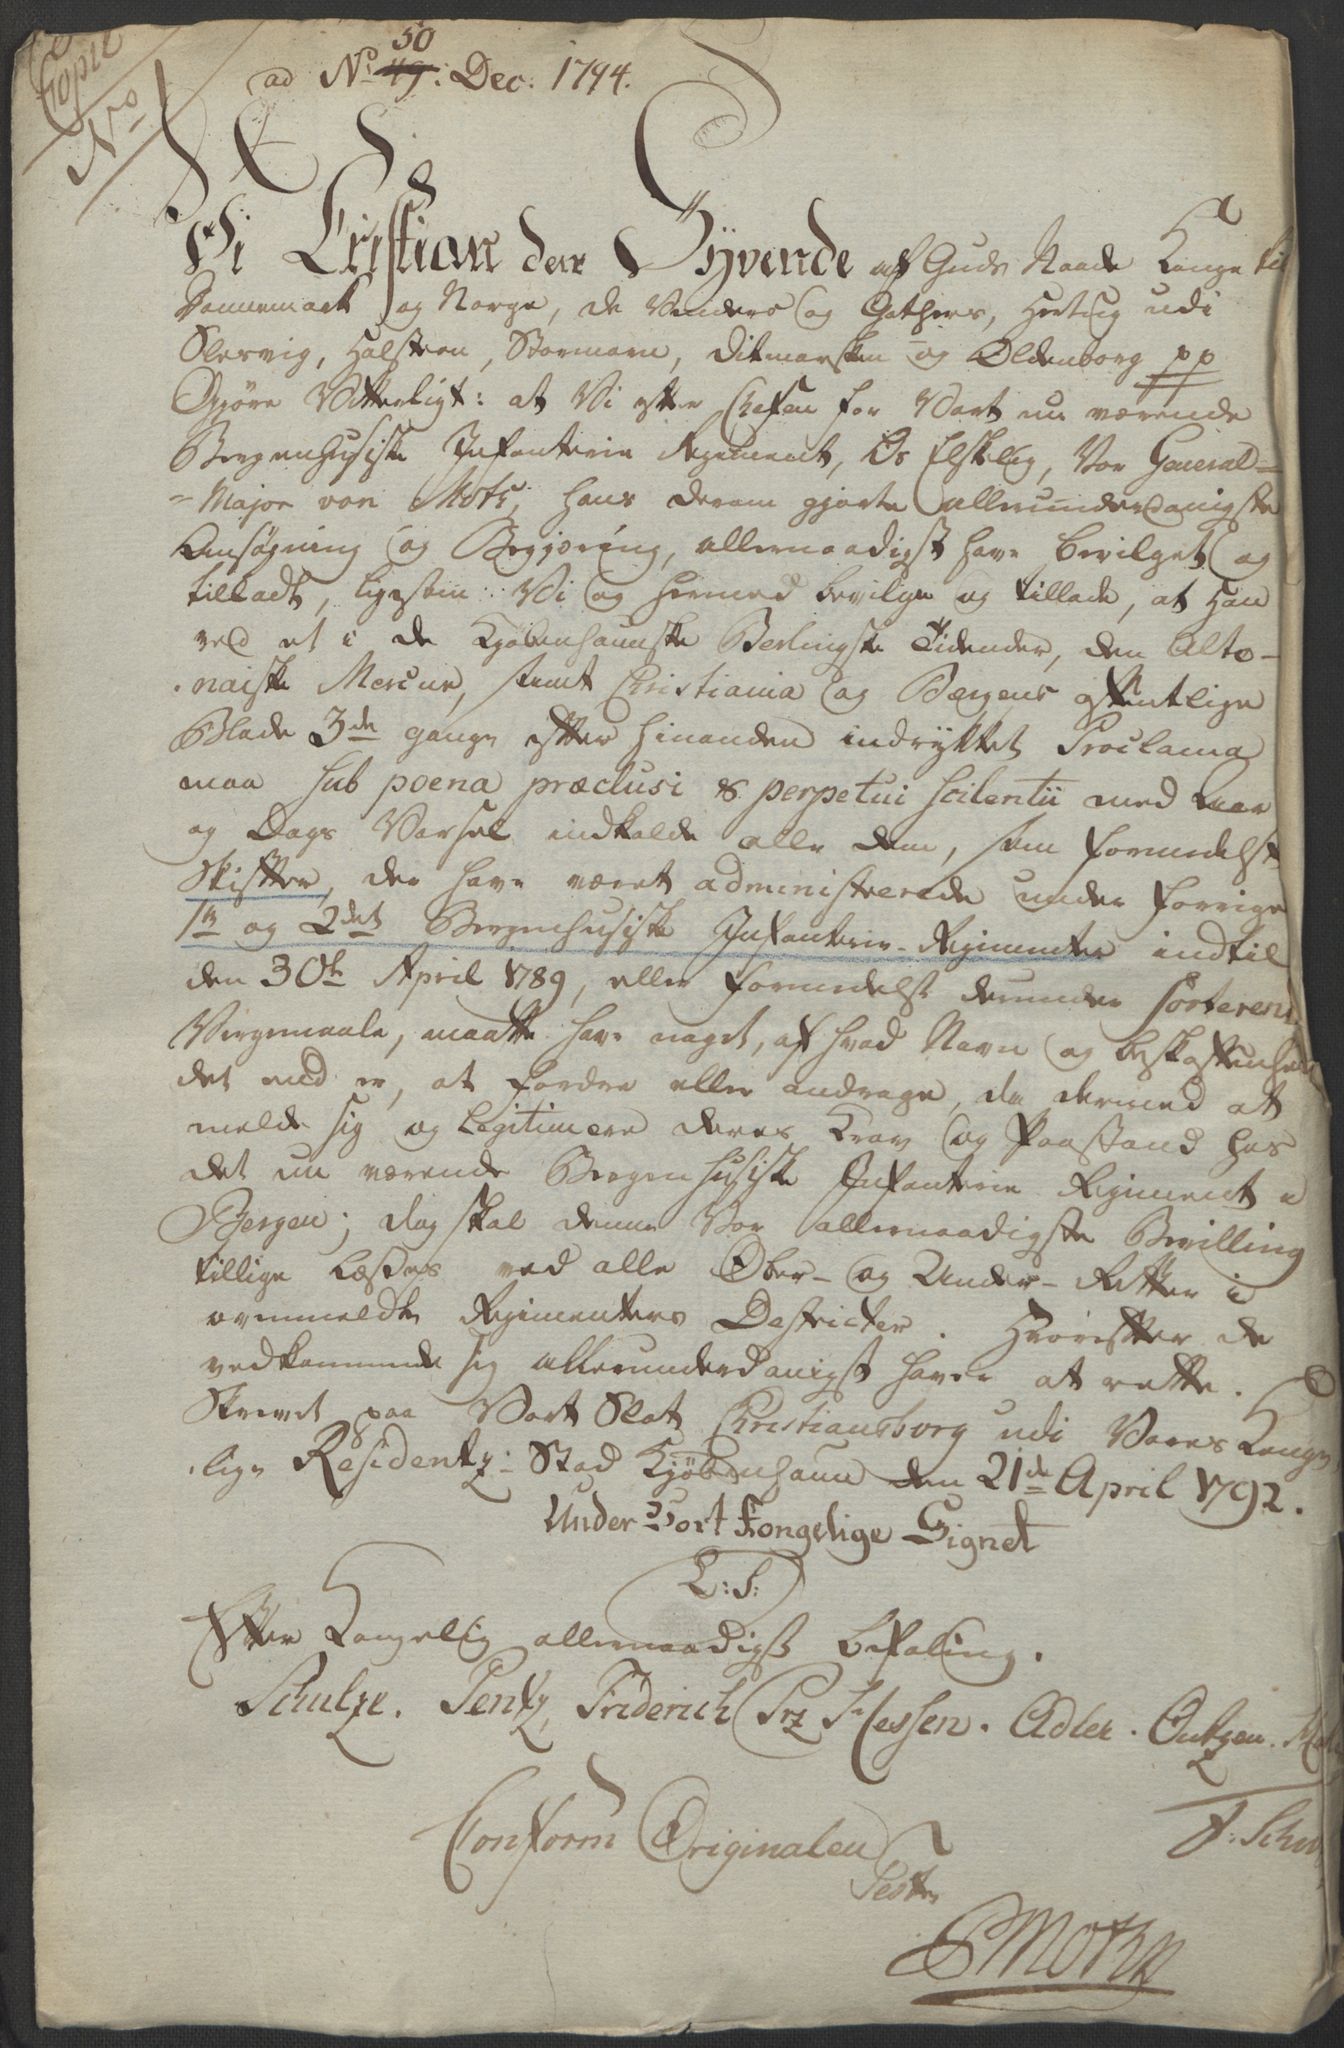 Copie
No
ad No 50 49: Dec: 1794.
Vi Cristian den Syvende af Guds Naade Konge til
Dannemark og Norge, de Venders og Gothers, Hertug udi
Slesvig, Holsteen, Stormarn, Ditmarsken og Oldenborg pp
Gjöre Vitterligt: at Vi efter Chefen for Vort nu værende
Bergenhusiske Infanterie Regiment, Os Elskelig, Vor General-
-Major von Motz, hans derom gjorte allerunderdanigste
Ansögning og Begjering, allernaadigst have bevilget og
tilladt, ligesom Vi og hermed bevilge og tillade, at han
ved et i de Kjöbenhavnske Berlingske Tidender, den Alto-
naiske Mercur, samt Christiania og Bergens offentlige
Blade 3de gange efter hinanden indrykket Proclama
maa sub poena præclusi & perpetui scilentii med Aar
og Dags Varsel indkalde alle dem, som formedelst
Skifter, der have været administrerede under forrige
1te og 2det Bergenhusiske Infanterie-Regimenter indtil
den 30te April 1789, eller formedelst derunder sorteren
Vergemaale, maatte have noget, af hvad Navn og beskaffenhed
det end er, at fordre eller andrage, da dermed at
melde sig og legitimere deres Krav og Paastand hos
det nu værende Bergenhusiske Infanterie Regiment i
Bergen; dog skal denne Vor allernaadigste Bevilling
tillige læses ved alle Ober- og Under-Retter i
ovenmeldte Regimenters Destricter. Hvorefter de
vedkommende sig allerunderdanigst have at rette.
Skrevet paa Vort Slot Christiansborg udi Vores Konge
lige Residentz-Stad Kjöbenhavn den 21de April 1792.
Under Vort Kongelige Signet
L:S:
Efter Kongelig allernaadigst befaling.
Schulze. Pentz, Friderich Prz Hessen. Adler. Outzen.
F: Schu
Conform Originalen
Testr
Motz